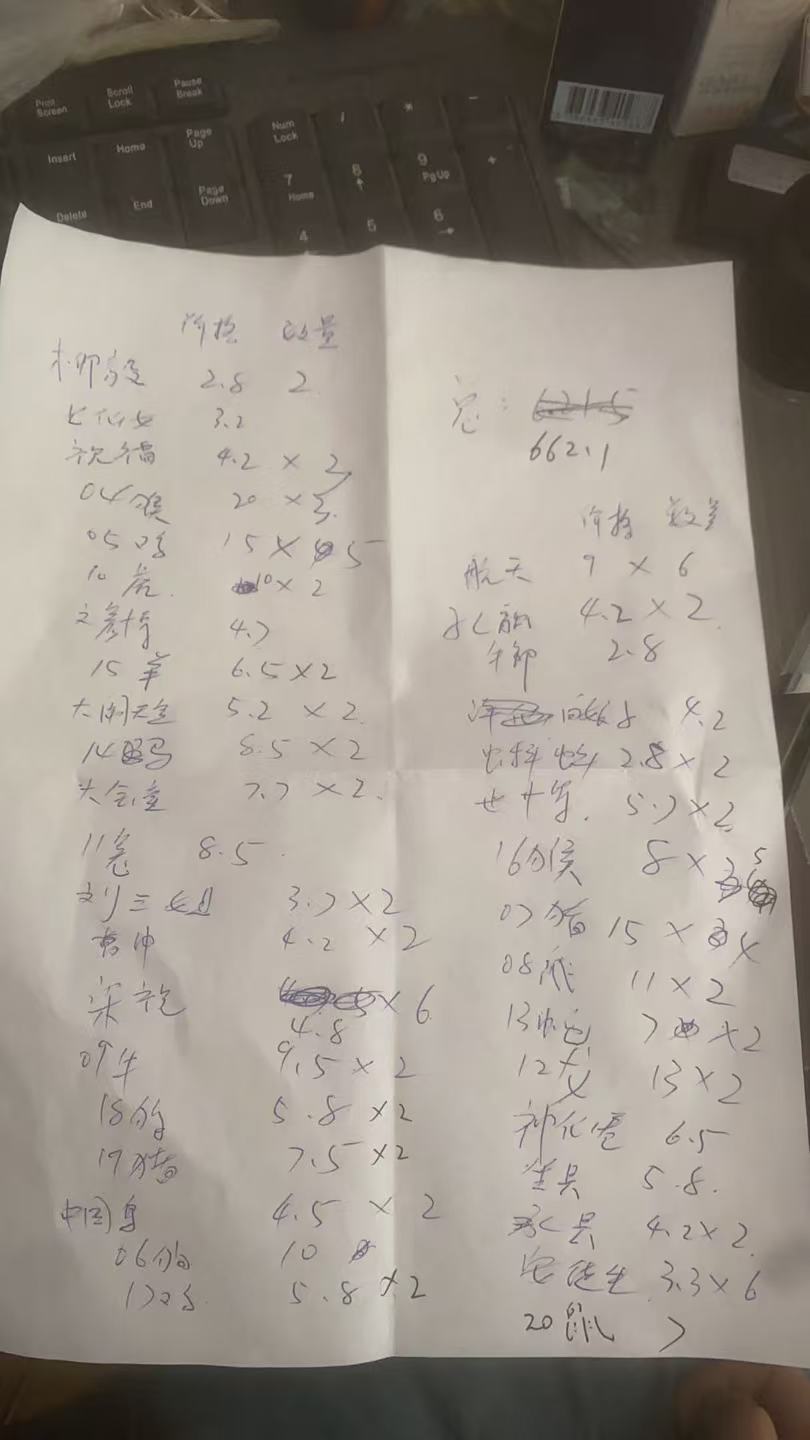 Print Screen
Scroll Lock
Pause Break
Insert
Home
Page Up
Num Lock
/
*
-
Delete
End
Page Down
7 Home
8
9 PgUp
+
4
5
6
价格 数量
柳毅 2.8 2
七仙女 3.2
祝福 4.2 × 2
04猴 20 × 3
05鸡 15 × 5
10虎 10 × 2
文彦博 4.7
15羊 6.5 × 2
大闹天宫 5.2 × 2
14马 8.5 × 2
大宝 7.7 × 2
11兔 8.5
刘三姐 3.7 × 2
曹冲 4.2 × 2
宋词 × 6
4.8
09牛 9.5 × 2
18狗 5.8 × 2
19猪 7.5 × 2
中国鸟 4.5 × 2
06狗 10
17鸡 5.8 × 2
总:
662.1
价格 数量
航天 9 × 6
4.2 × 2
牛郎 2.8
4.2
2.8 × 2
5.7 × 2
16猴 8 × 5
07猪 15 ×
08鼠 11 × 2
13蛇 7 × 2
12龙 13 × 2
神化 6.5
5.8
4.2 × 2
安徒生 3.3 × 6
20鼠 7